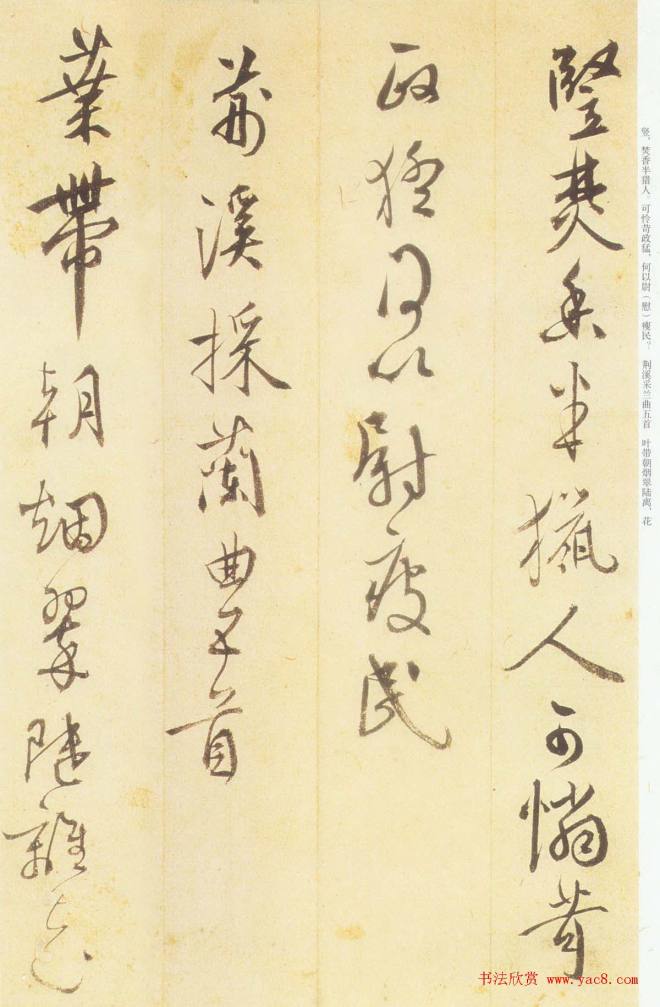 竪焚香半獵人可憐苛
政猛何以尉瘦民
荊溪採蘭曲五首
葉帶朝烟翠陸離花
竖，焚香半猎人。可怜苛政猛，何以尉（慰）瘦民？　荆溪采兰曲五首　叶带朝烟翠陆离，花
书法欣赏 www.yac8.com